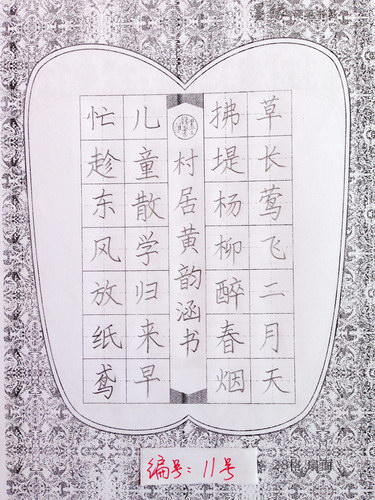 草长莺飞二月天
拂堤杨柳醉春烟
村居黄韵涵书
儿童散学归来早
忙趁东风放纸鸢
编号:11号